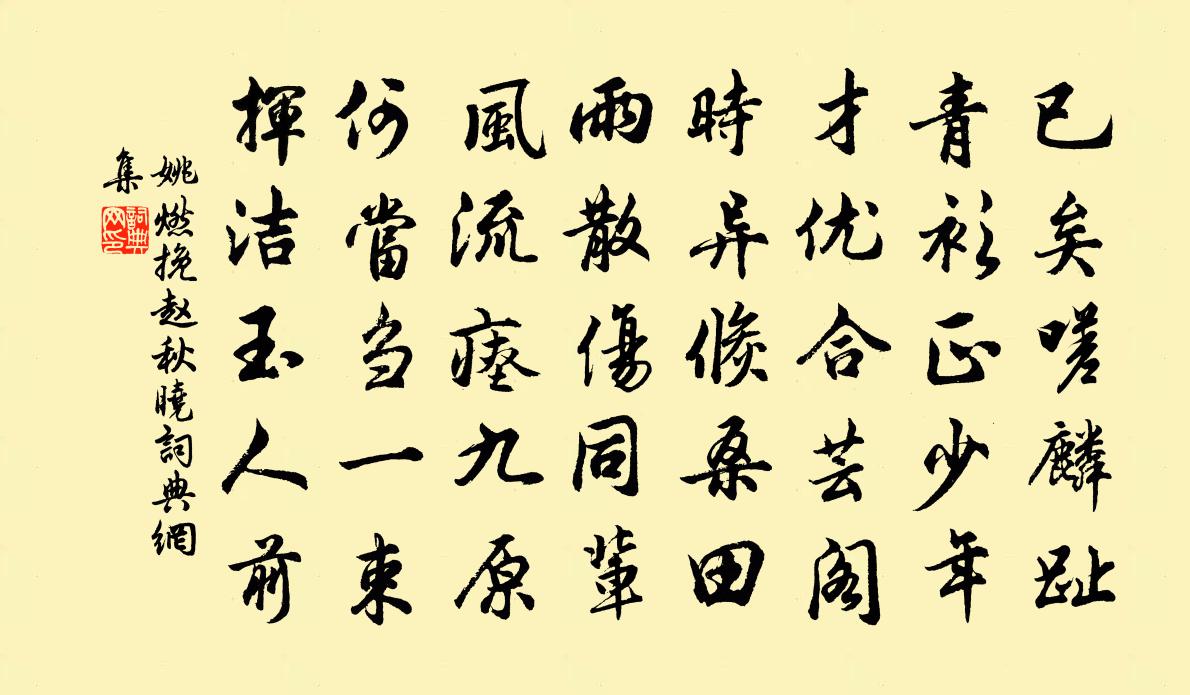 已矣嗟麟趾
青衫正少年
才优合芸阁
時异倏桑田
雨散傷同輩
風流瘗九原
何當刍一束
揮洁玉人前
姚燃挽赵秋曉詞典網
集
詞典
网印